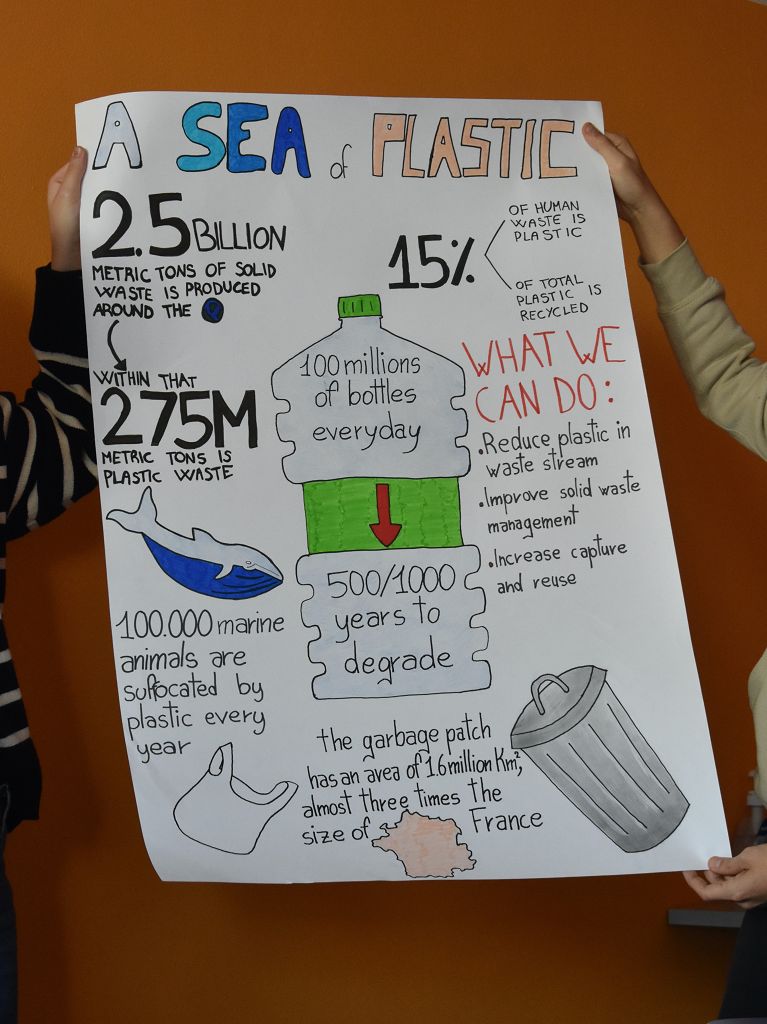 A SEA of PLASTIC
2.5 BILLION
METRIC TONS OF SOLID
WASTE IS PRODUCED
AROUND THE
WITHIN THAT
275M
METRIC TONS IS
PLASTIC WASTE
15%
OF HUMAN
WASTE IS
PLASTIC
OF TOTAL
PLASTIC IS
RECYCLED
100 millions
of bottles
everyday
500/1000
years to
degrade
WHAT WE
CAN DO:
.Reduce plastic in
waste stream
.Improve solid waste
management
.Increase capture
and reuse
100.000 marine
animals are
suffocated by
plastic every
year
the garbage patch
has an area of 1.6 million Km²,
almost three times the
size of France